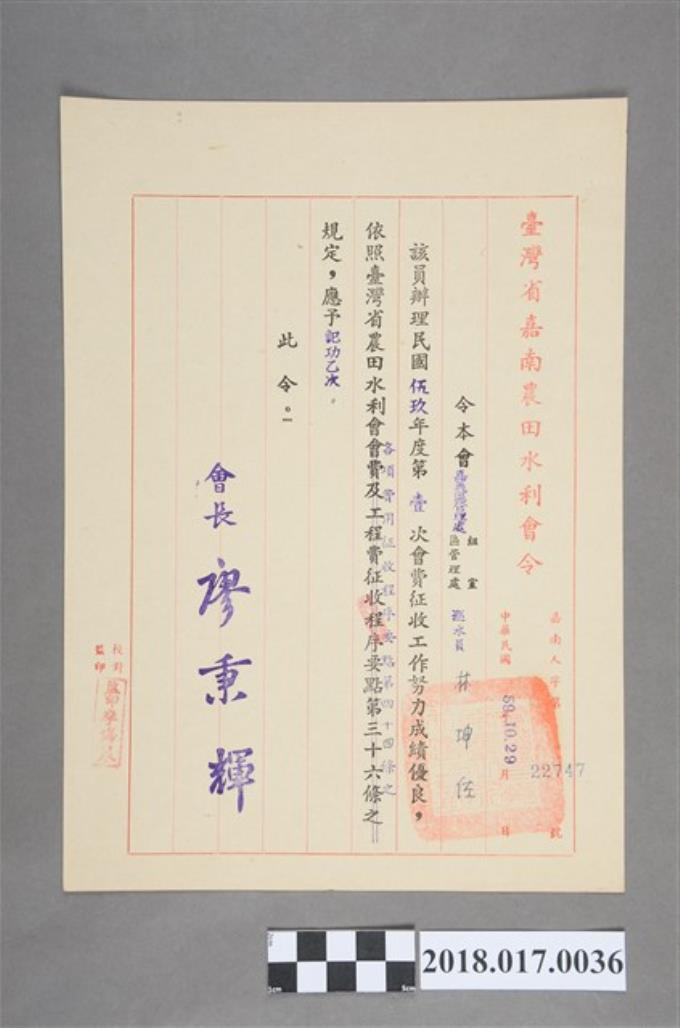 臺灣省嘉南農田水利會令
嘉南人字第 22747 號
中華民國 59.10.29 月 日
令本會 組室
區管理處
巡水員 林坤
該員辦理民國伍玖年度第壹次會費征收工作努力成績優良，
依照臺灣省農田水利會會費及工程費征收程序要點第三十六條之
各項費用征收程序要點第四十四條之
規定，應予記功乙次。
此令。
會長 廖秉輝
校對
監印
2018.017.0036